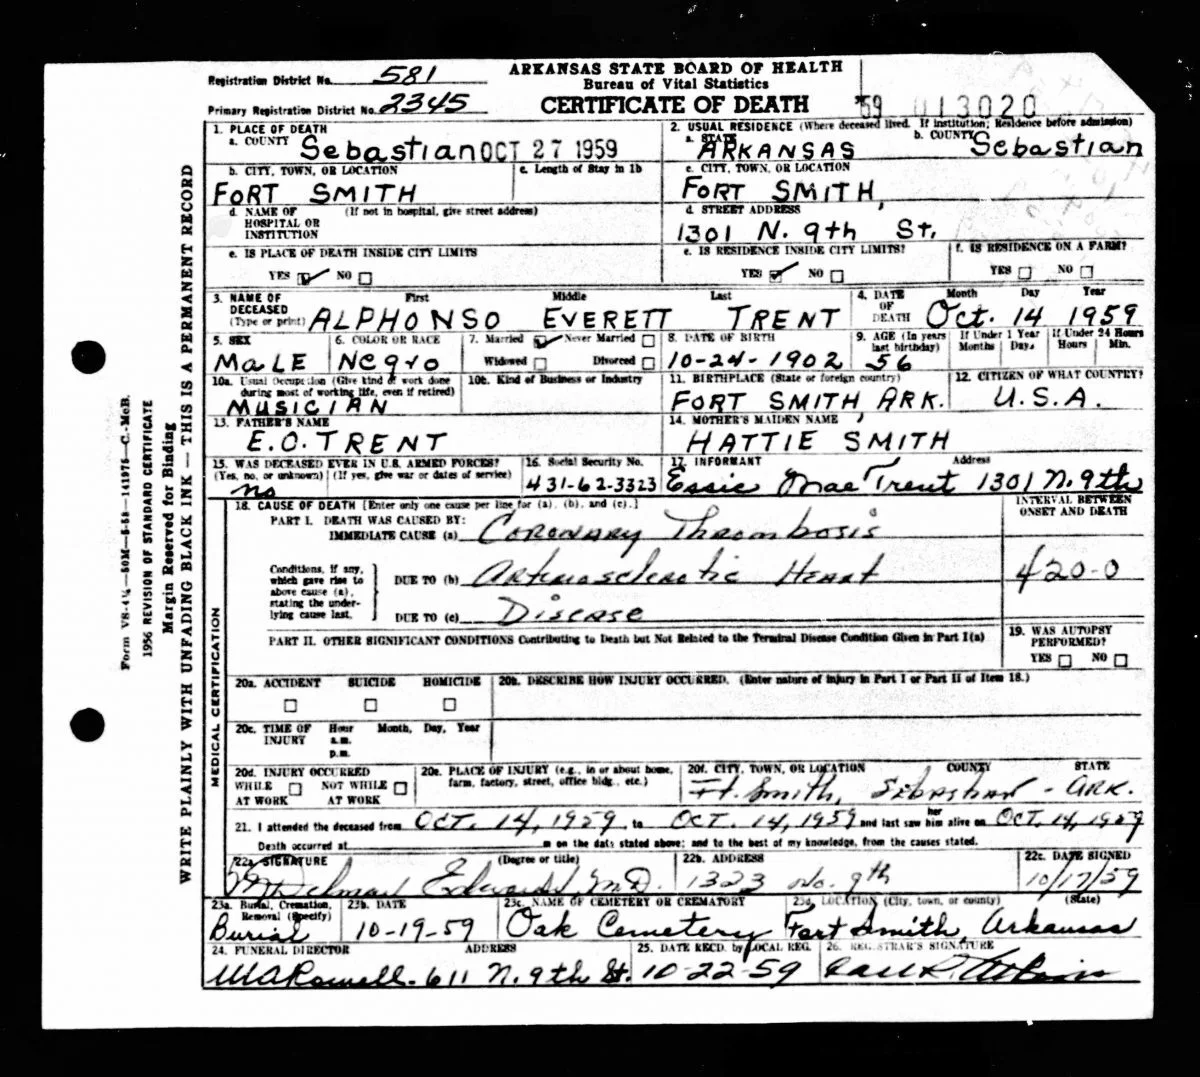 Registration District No. 581
ARKANSAS STATE BOARD OF HEALTH
Bureau of Vital Statistics
Primary Registration District No. 2345
CERTIFICATE OF DEATH
'59 013020
1. PLACE OF DEATH
a. COUNTY Sebastian OCT 27 1959
2. USUAL RESIDENCE (Where deceased lived. If institution; Residence before admission)
a. STATE ARKANSAS
b. COUNTY Sebastian
b. CITY, TOWN, OR LOCATION
FORT SMITH
c. Length of Stay in 1b
c. CITY, TOWN, OR LOCATION
FORT SMITH,
d. NAME OF (If not in hospital, give street address)
HOSPITAL OR
INSTITUTION
d. STREET ADDRESS
1301 N. 9th St.
e. IS PLACE OF DEATH INSIDE CITY LIMITS
YES NO
e. IS RESIDENCE INSIDE CITY LIMITS?
YES NO
f. IS RESIDENCE ON A FARM?
YES NO
3. NAME OF DECEASED (Type or print)
First Middle Last
ALPHONSO EVERETT TRENT
4. DATE OF DEATH
Month Day Year
Oct. 14 1959
5. SEX
MALE
6. COLOR OR RACE
Negro
7. Married Never Married
Widowed Divorced
8. DATE OF BIRTH
10-24-1902
9. AGE (In years last birthday)
56
If Under 1 Year
Months Days
If Under 24 Hours
Hours Min.
10a. Usual Occupation (Give kind of work done
during most of working life, even if retired)
MUSICIAN
10b. Kind of Business or Industry
11. BIRTHPLACE (State or foreign country)
FORT SMITH ARK.
12. CITIZEN OF WHAT COUNTRY?
U.S.A.
13. FATHER'S NAME
E.O. TRENT
14. MOTHER'S MAIDEN NAME
HATTIE SMITH
15. WAS DECEASED EVER IN U.S. ARMED FORCES?
(Yes, no, or unknown) (If yes, give war or dates of service)
no
16. Social Security No.
431-62-3323
17. INFORMANT Address
Essie Mae Trent 1301 N. 9th
18. CAUSE OF DEATH [Enter only one cause per line for (a), (b), and (c).]
INTERVAL BETWEEN
ONSET AND DEATH
PART I. DEATH WAS CAUSED BY:
IMMEDIATE CAUSE (a) Coronary Thrombosis
Conditions, if any,
which gave rise to
above cause (a),
stating the under-
lying cause last.
DUE TO (b) Arteriosclerotic Heart
420-0
DUE TO (c) Disease
PART II. OTHER SIGNIFICANT CONDITIONS Contributing to Death but Not Related to the Terminal Disease Condition Given in Part I(a)
19. WAS AUTOPSY
PERFORMED?
YES NO
20a. ACCIDENT SUICIDE HOMICIDE
20b. DESCRIBE HOW INJURY OCCURRED. (Enter nature of injury in Part I or Part II of Item 18.)
20c. TIME OF INJURY
Hour Month, Day, Year
a.m.
p.m.
20d. INJURY OCCURRED
WHILE AT WORK NOT WHILE AT WORK
20e. PLACE OF INJURY (e.g., in or about home,
farm, factory, street, office bldg., etc.)
20f. CITY, TOWN, OR LOCATION COUNTY STATE
Ft. Smith, Sebastian - ARK.
21. I attended the deceased from OCT. 14, 1959 to OCT. 14, 1959 and last saw her alive on OCT. 14, 1959
Death occurred at m on the date stated above; and to the best of my knowledge, from the causes stated.
22a. SIGNATURE (Degree or title)
Edwards M.D.
22b. ADDRESS
1323 No. 9th
22c. DATE SIGNED
10/17/59
23a. Burial, Cremation,
Removal (Specify)
Burial
23b. DATE
10-19-59
23c. NAME OF CEMETERY OR CREMATORY
Oak Cemetery
23d. LOCATION (City, town, or county) (State)
Fort Smith, Arkansas
24. FUNERAL DIRECTOR ADDRESS
Rowell. 611 N. 9th St.
25. DATE RECD. by LOCAL REG.
10-22-59
26. REGISTRAR'S SIGNATURE
Form VS-4¼—50M—5-58—141975-C.-McB.
1956 REVISION OF STANDARD CERTIFICATE
Margin Reserved for Binding
WRITE PLAINLY WITH UNFADING BLACK INK — THIS IS A PERMANENT RECORD
MEDICAL CERTIFICATION